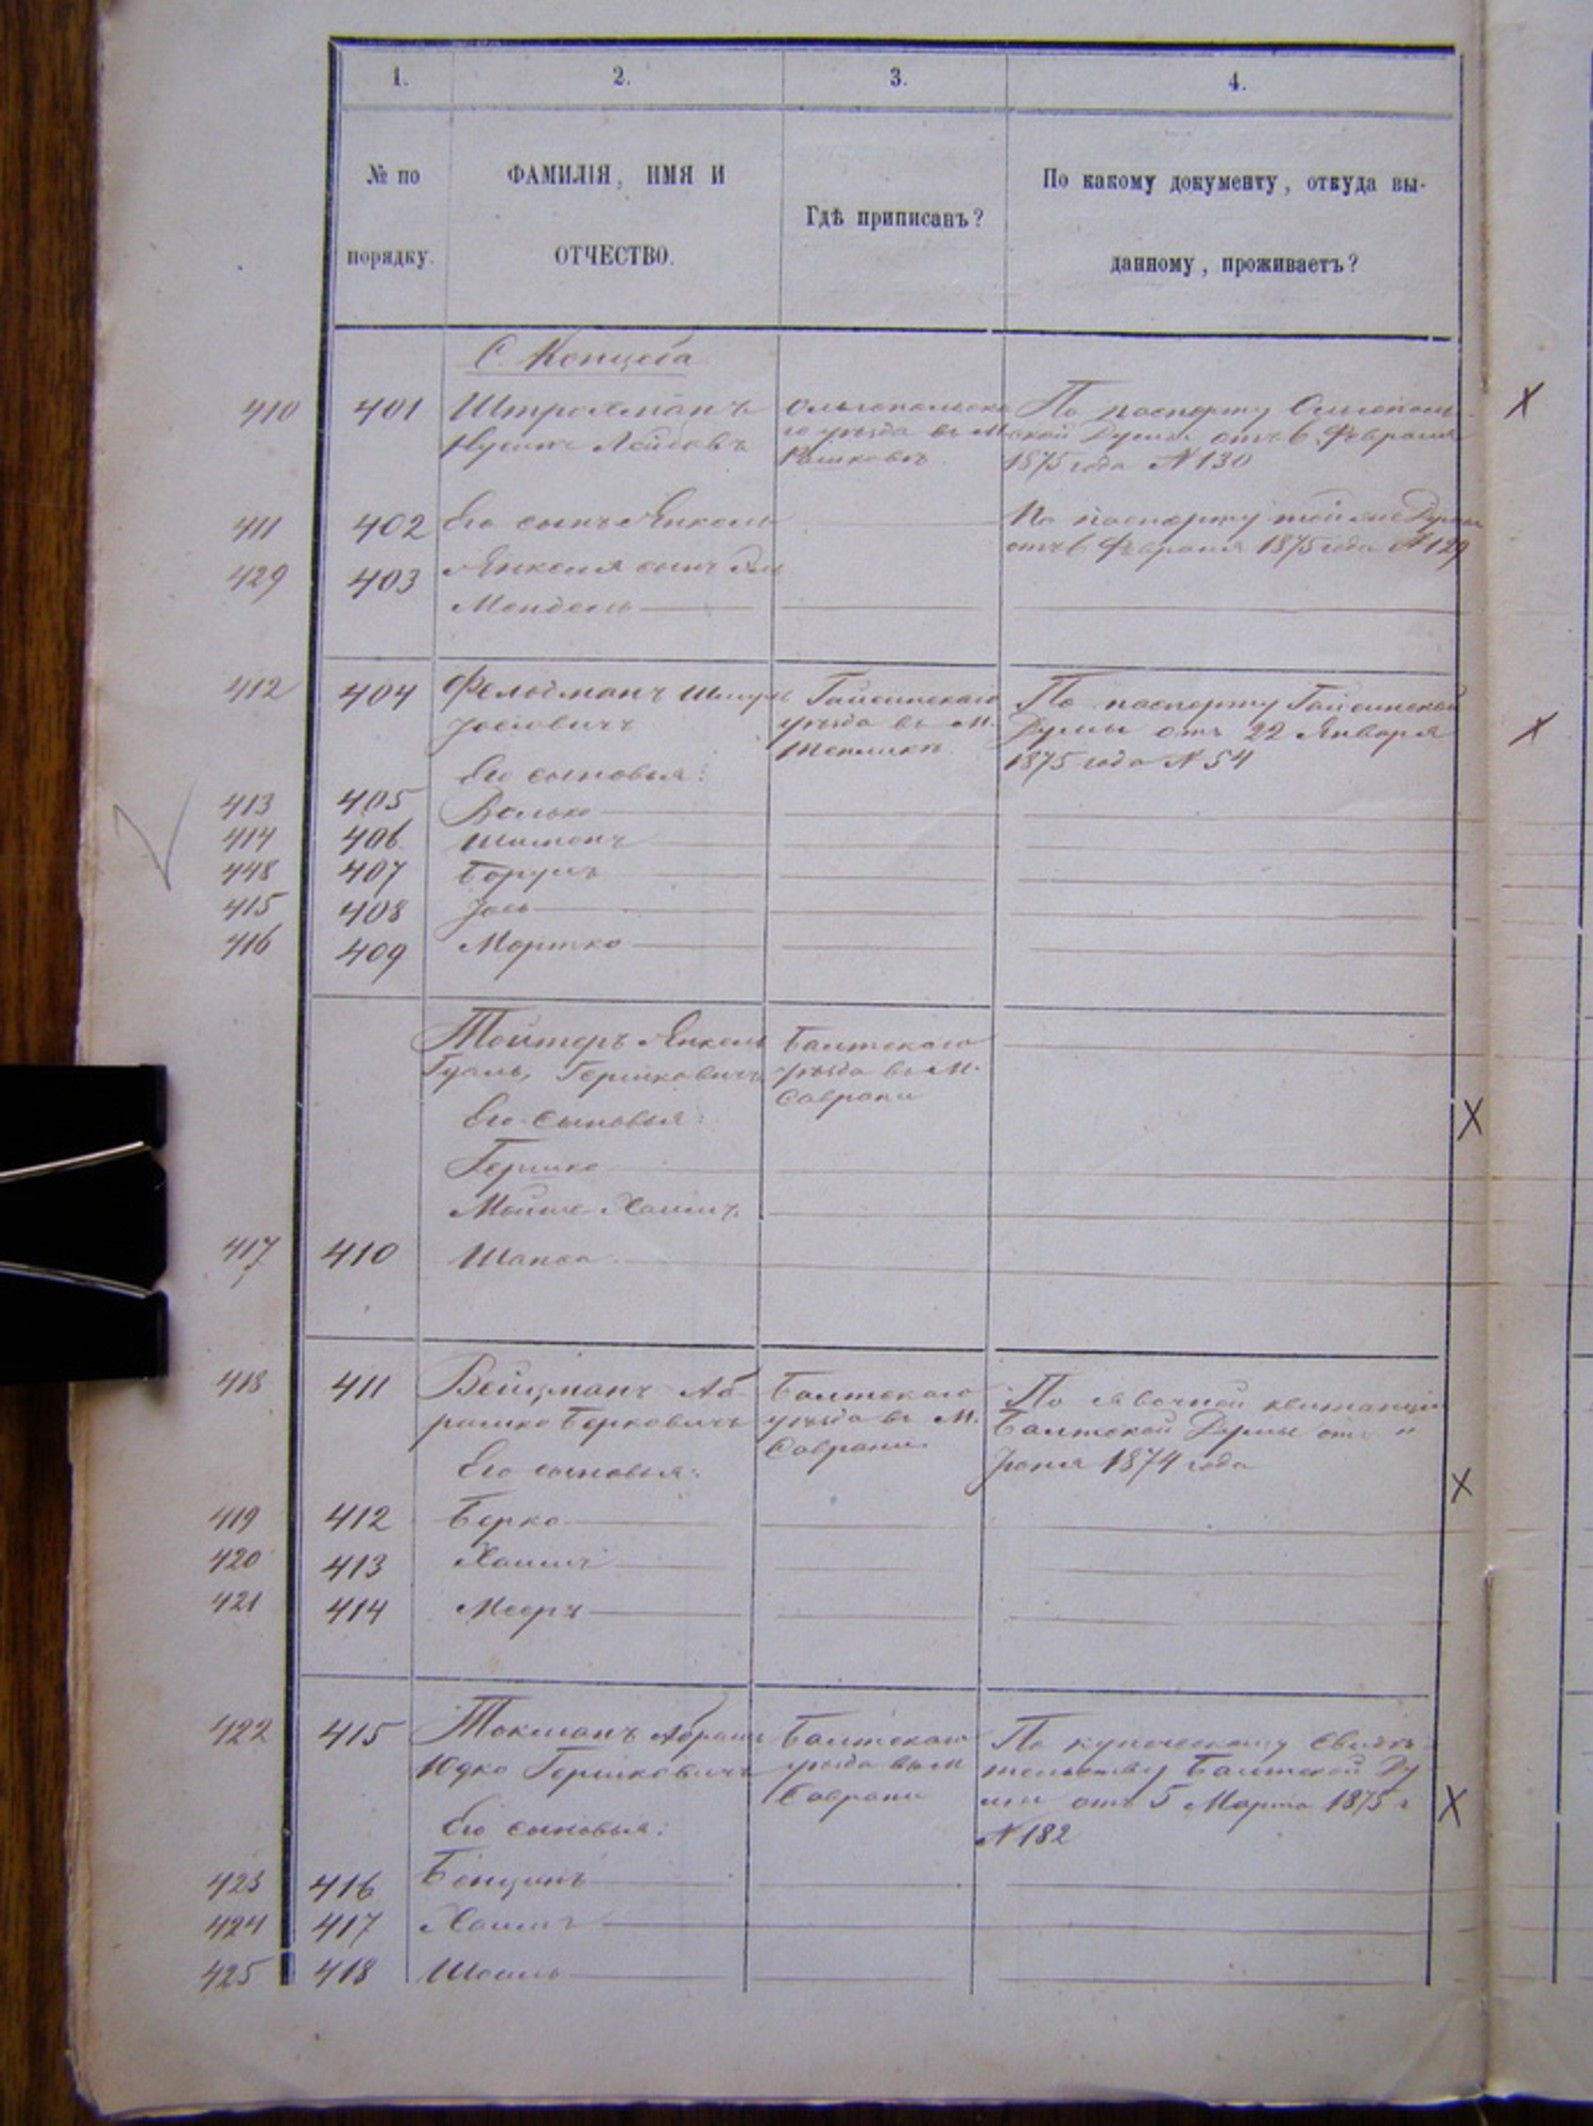 1. 2. 3. 4.
№ по порядку.
ФАМИЛІЯ, ИМЯ И ОТЧЕСТВО.
Гдѣ приписанъ?
По какому документу, откуда выданному, проживаетъ?
С. Концеба
410 401
Нусинъ Лейбовъ
Ольгопольска
го уѣзда въ М
Рашковѣ
По паспорту Ольгополь-
ской Думы отъ 6 Февраля
1875 года № 130
411 402 Его сынъ Янкель
По паспорту той же Думы
отъ 6 Февраля 1875 года № 129
429 403 Янкеля сынъ
Мендель
412 404 Фельдманъ Шмуль
Іосіовичъ
Гайсинскаго
уѣзда въ М.
Тепликѣ
По паспорту Гайсинской
Думы отъ 22 Января
1875 года № 54
Его сыновья:
413 405 Волько
414 406 Шимонъ
448 407 Борухъ
415 408 Іось
416 409 Мортко
Тойтеръ Янкель
Гершковичъ
Балтскаго
уѣзда въ М.
Саврани
Его сыновья:
Гершко
Мойше Хаимъ
417 410 Шапса
418 411 Вейцманъ Аб-
рамко Берковичъ
Балтскаго
уѣзда въ М.
Саврани
По явочной квитанціи
Балтской Думы отъ "
Іюня 1874 года
Его сыновья:
419 412 Берко
420 413 Хаимъ
421 414 Мееръ
422 415 Токманъ Абрамъ
Юдко Гершковичъ
Балтскаго
уѣзда въ М
Саврани
По купеческому свидѣ-
тельству Балтской Ду-
мы отъ 5 Марта 1875 г
№ 182
Его сыновья:
423 416 Бенціонъ
424 417 Хаимъ
425 418